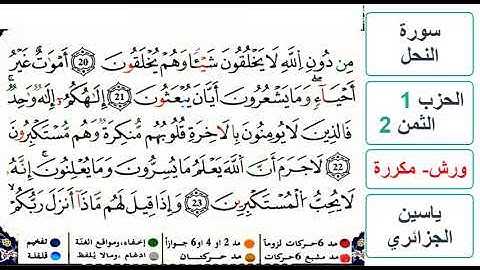 مِن دُونِ اِ۬للَّهِ لَا يَخْلُقُونَ شَيْـٔاٗ وَهُمْ يُخْلَقُونَ (20) أَمْوَٰتٌ غَيْرُ
أَحْيَآءٖ وَمَا يَشْعُرُونَ أَيَّانَ يُبْعَثُونَ (21) إِلَٰهُكُمُۥٓ إِلَٰهٞ وَٰحِدٞ
فَالذِينَ لَا يُومِنُونَ بِالَاخِرَةِ قُلُوبُهُم مُّنكِرَةٞ وَهُم مُّسْتَكْبِرُونَ
(22) لَا جَرَمَ أَنَّ اَ۬للَّهَ يَعْلَمُ مَا يُسِرُّونَ وَمَا يُعْلِنُونَ إِنَّهُۥ
لَا يُحِبُّ اُ۬لْمُسْتَكْبِرِينَ (23) وَإِذَا قِيلَ لَهُم مَّاذَآ أَنزَلَ رَبُّكُمْ
سورة
النحل
الحزب 1
الثمن 2
ورش- مكررة
ياسين
الجزائري
مد 6 حركات لزوماً
مد 2 أو 4 أو 6 جوازاً
إخفاء، ومواقع الغنّة
تفخيم
مد مشبع 6 حركات
مد حركتان
ادغام، ومالا يُلفظ
قلقلة